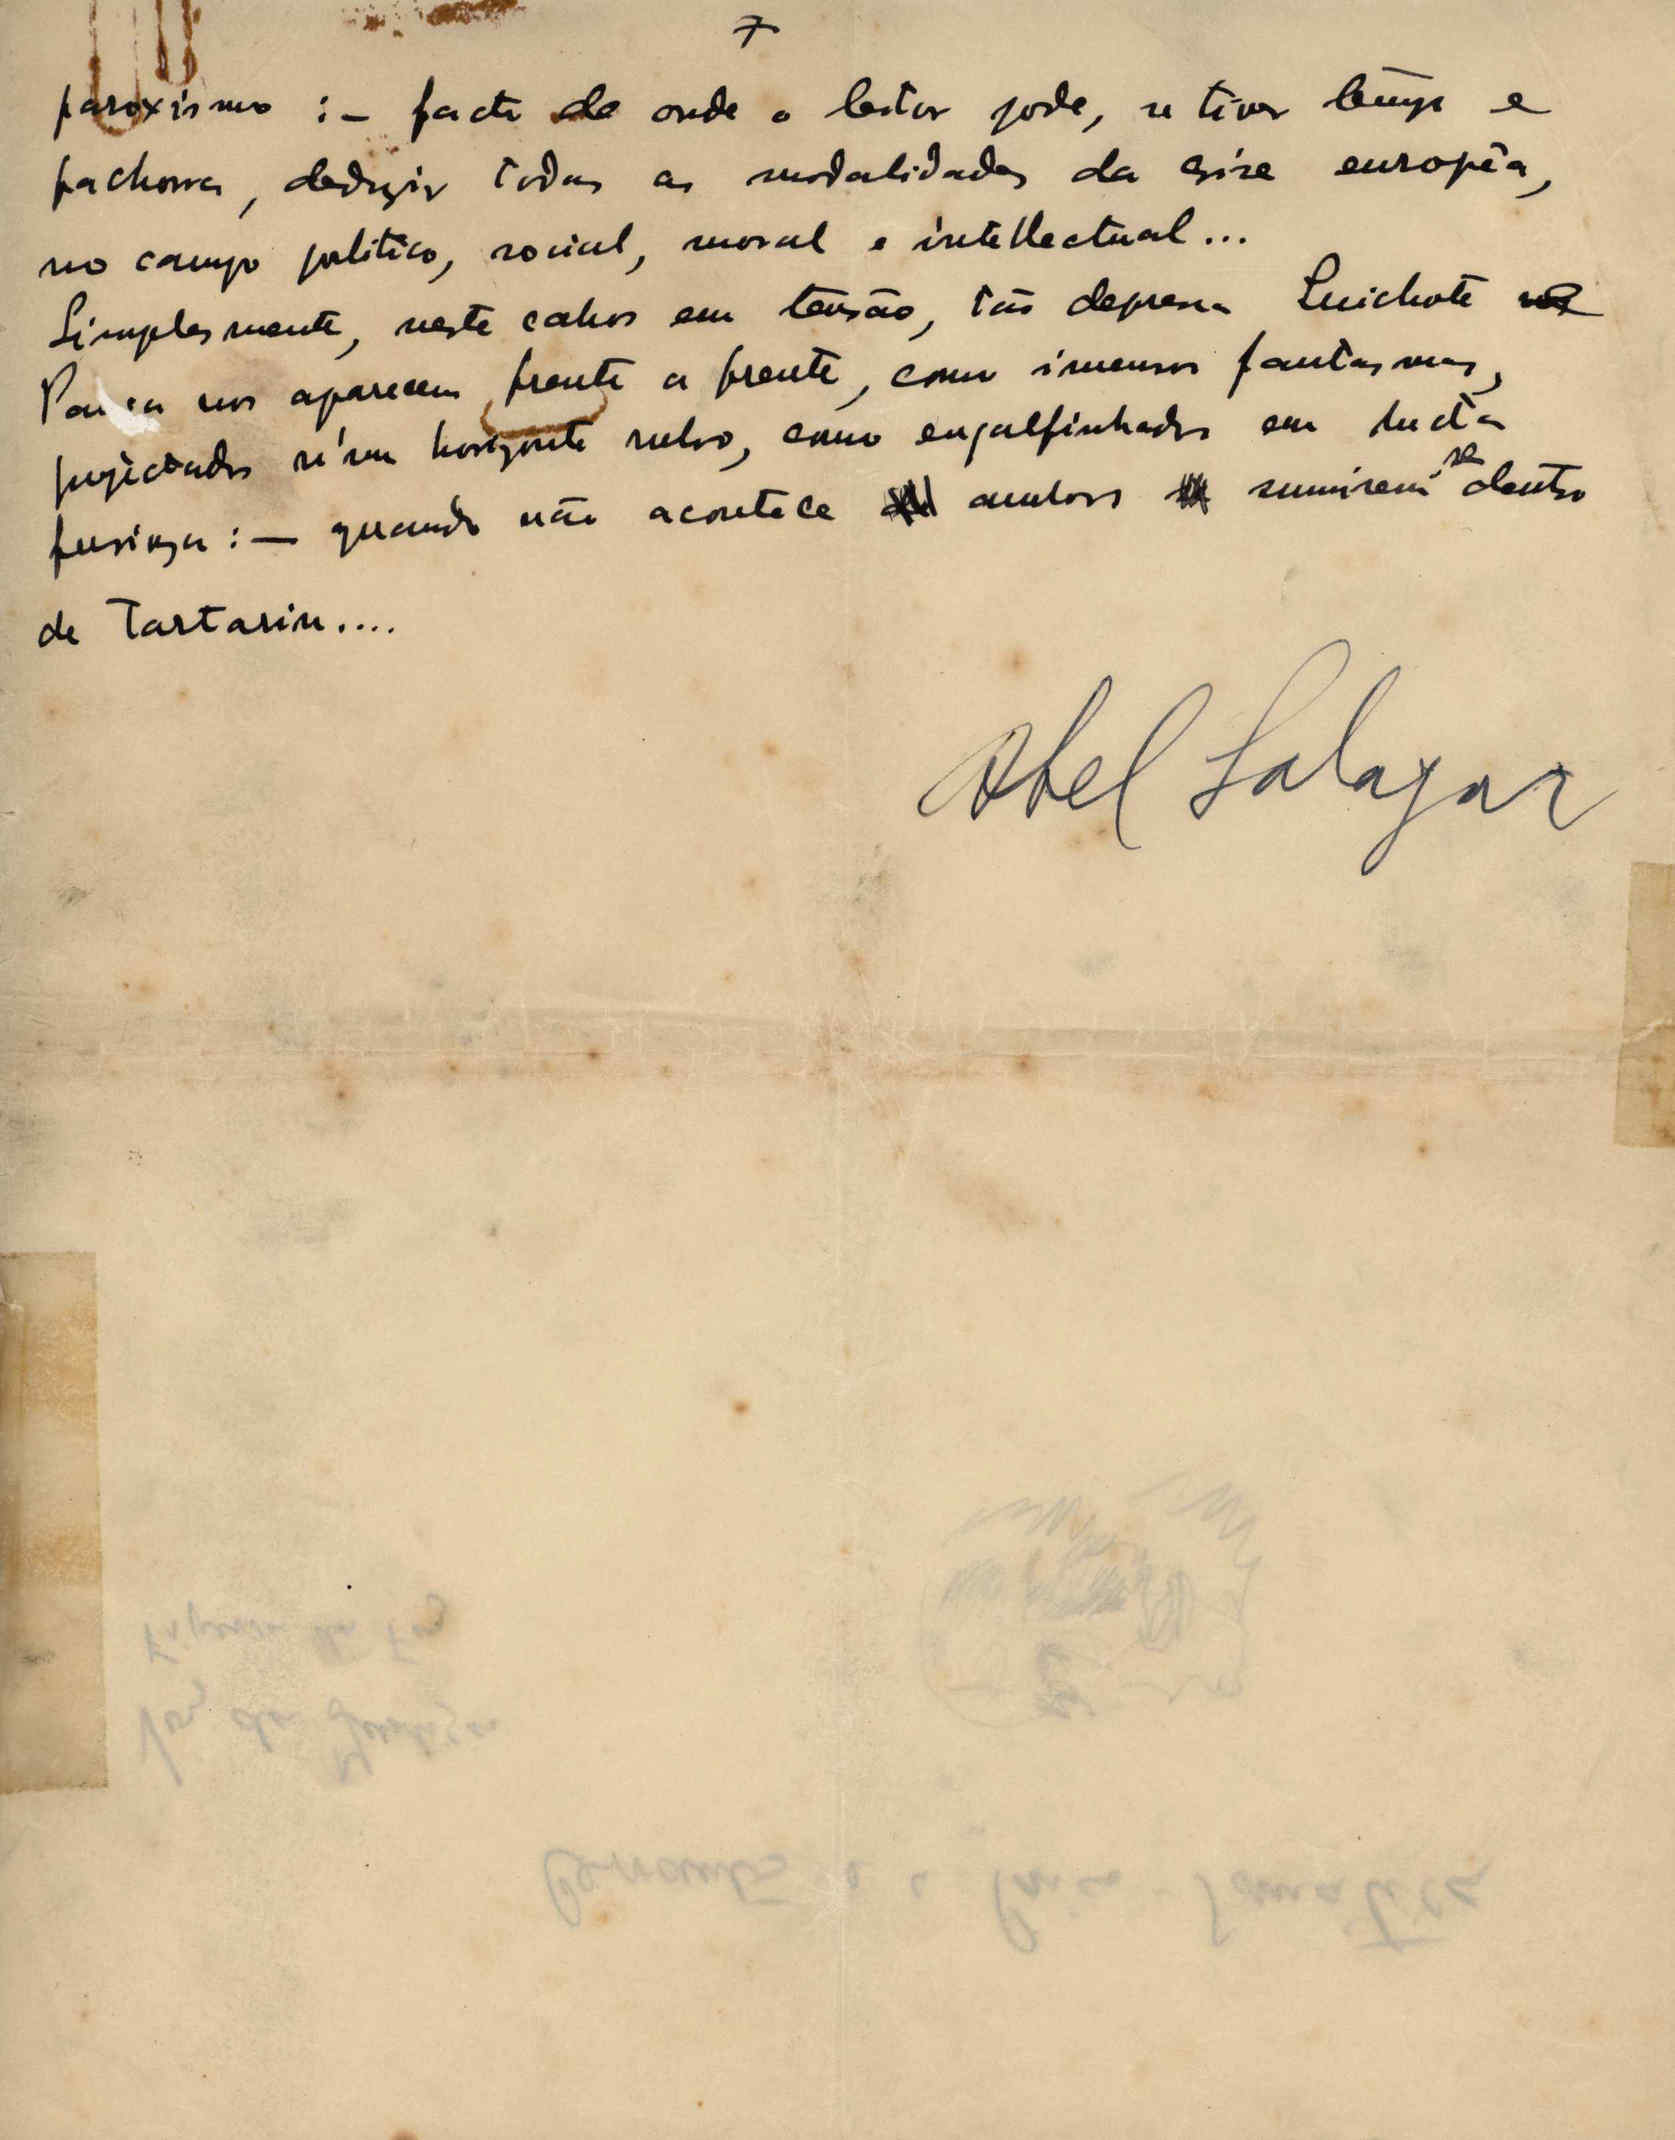 7
paroxismo : — facto de onde o leitor pode, se tiver tempo e
pachorra, deduzir todas as modalidades da crise européa,
no campo politico, social, moral e intellectual...
Simplesmente, neste cahos em tensão, tão depressa Quichote e
Pança nos aparecem frente a frente, como imensos fantasmas,
projectados n'um horizonte rubro, como engalfinhados em lucta
furiosa : — quando não acontece ambos sumirem-se dentro
de Tartarin....
Abel Salazar
Figueira da Foz
Voz da Justiça